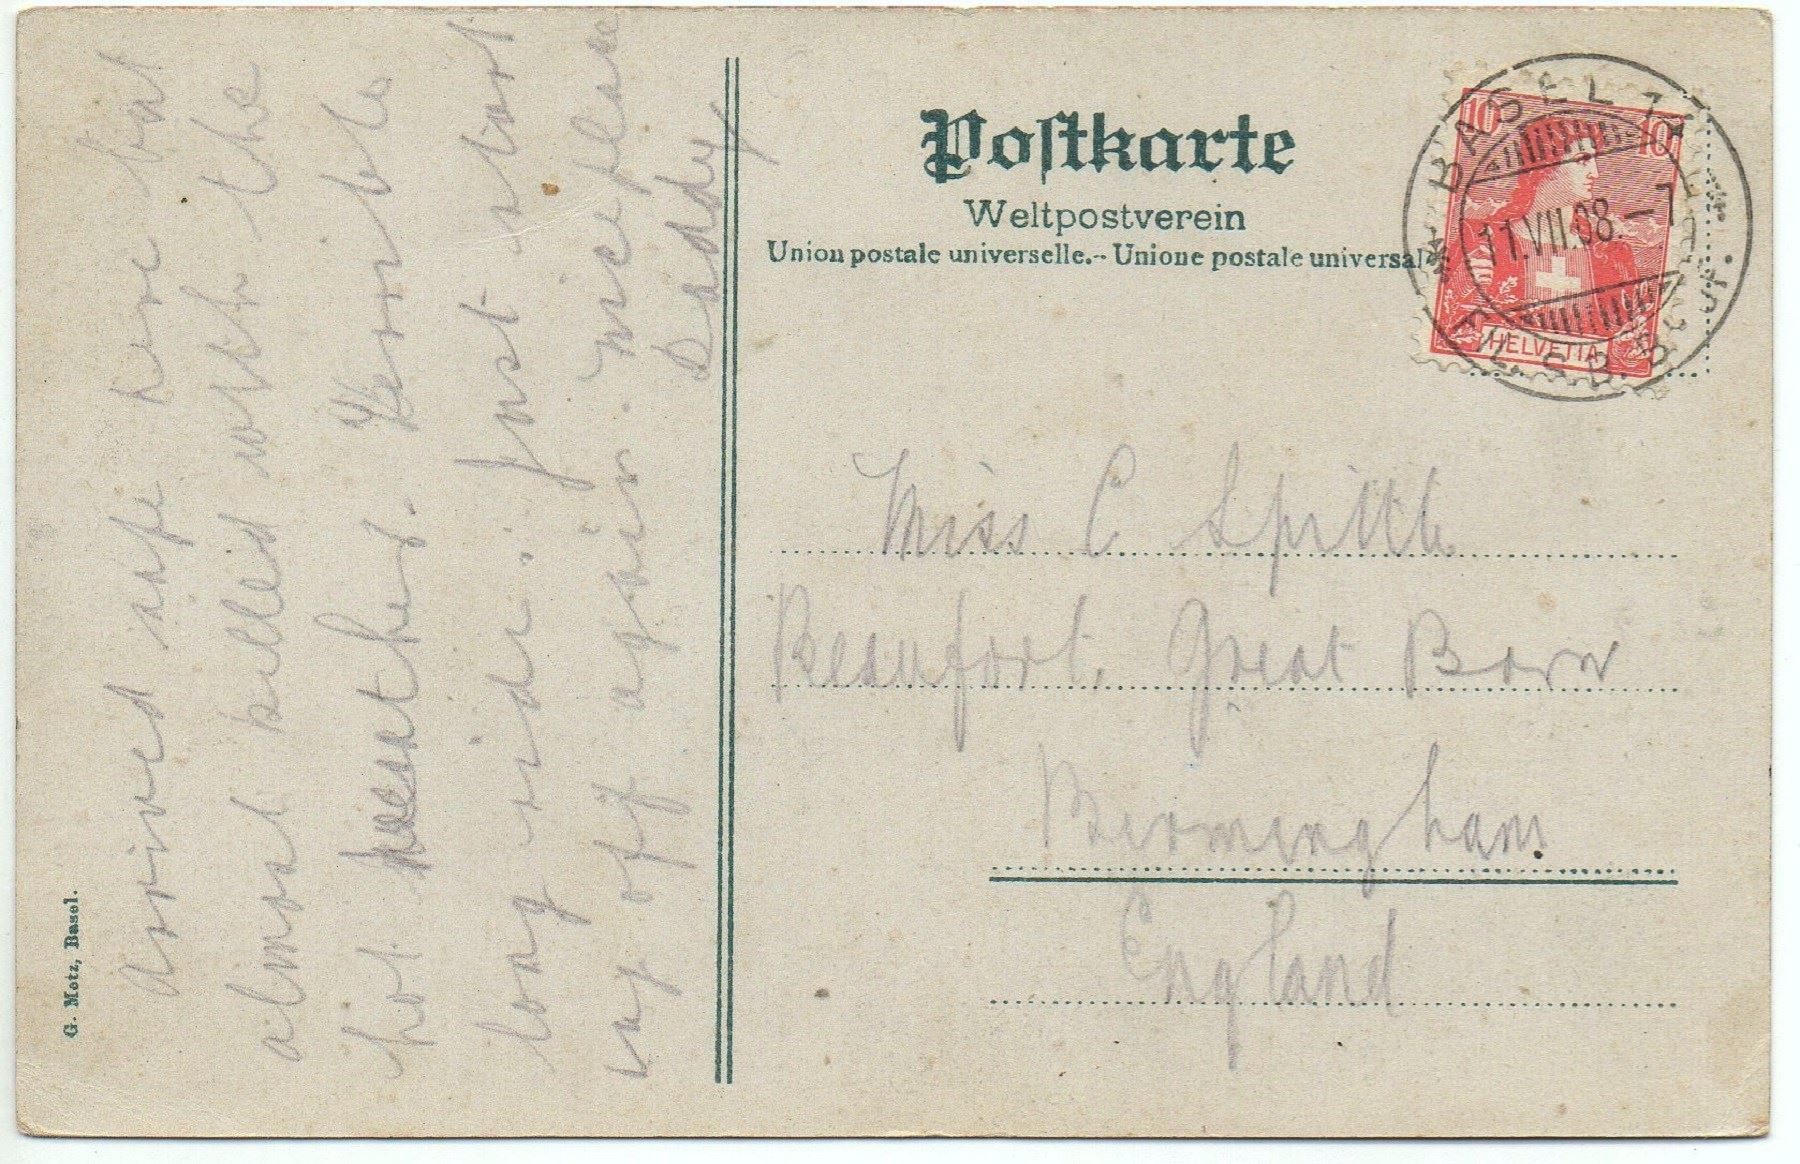 Postkarte
Weltpostverein
Union postale universelle.-- Unione postale universale
10
10
HELVETIA
BASEL
11.VII.08.-7
Miss C Spittle
Beaufort. Great Barr
Birmingham
England
Arrived safe here but
almost killed with the
hot weather. Terrible
long ride. Just start
off again. nice place
Daddy
G. Metz, Basel.